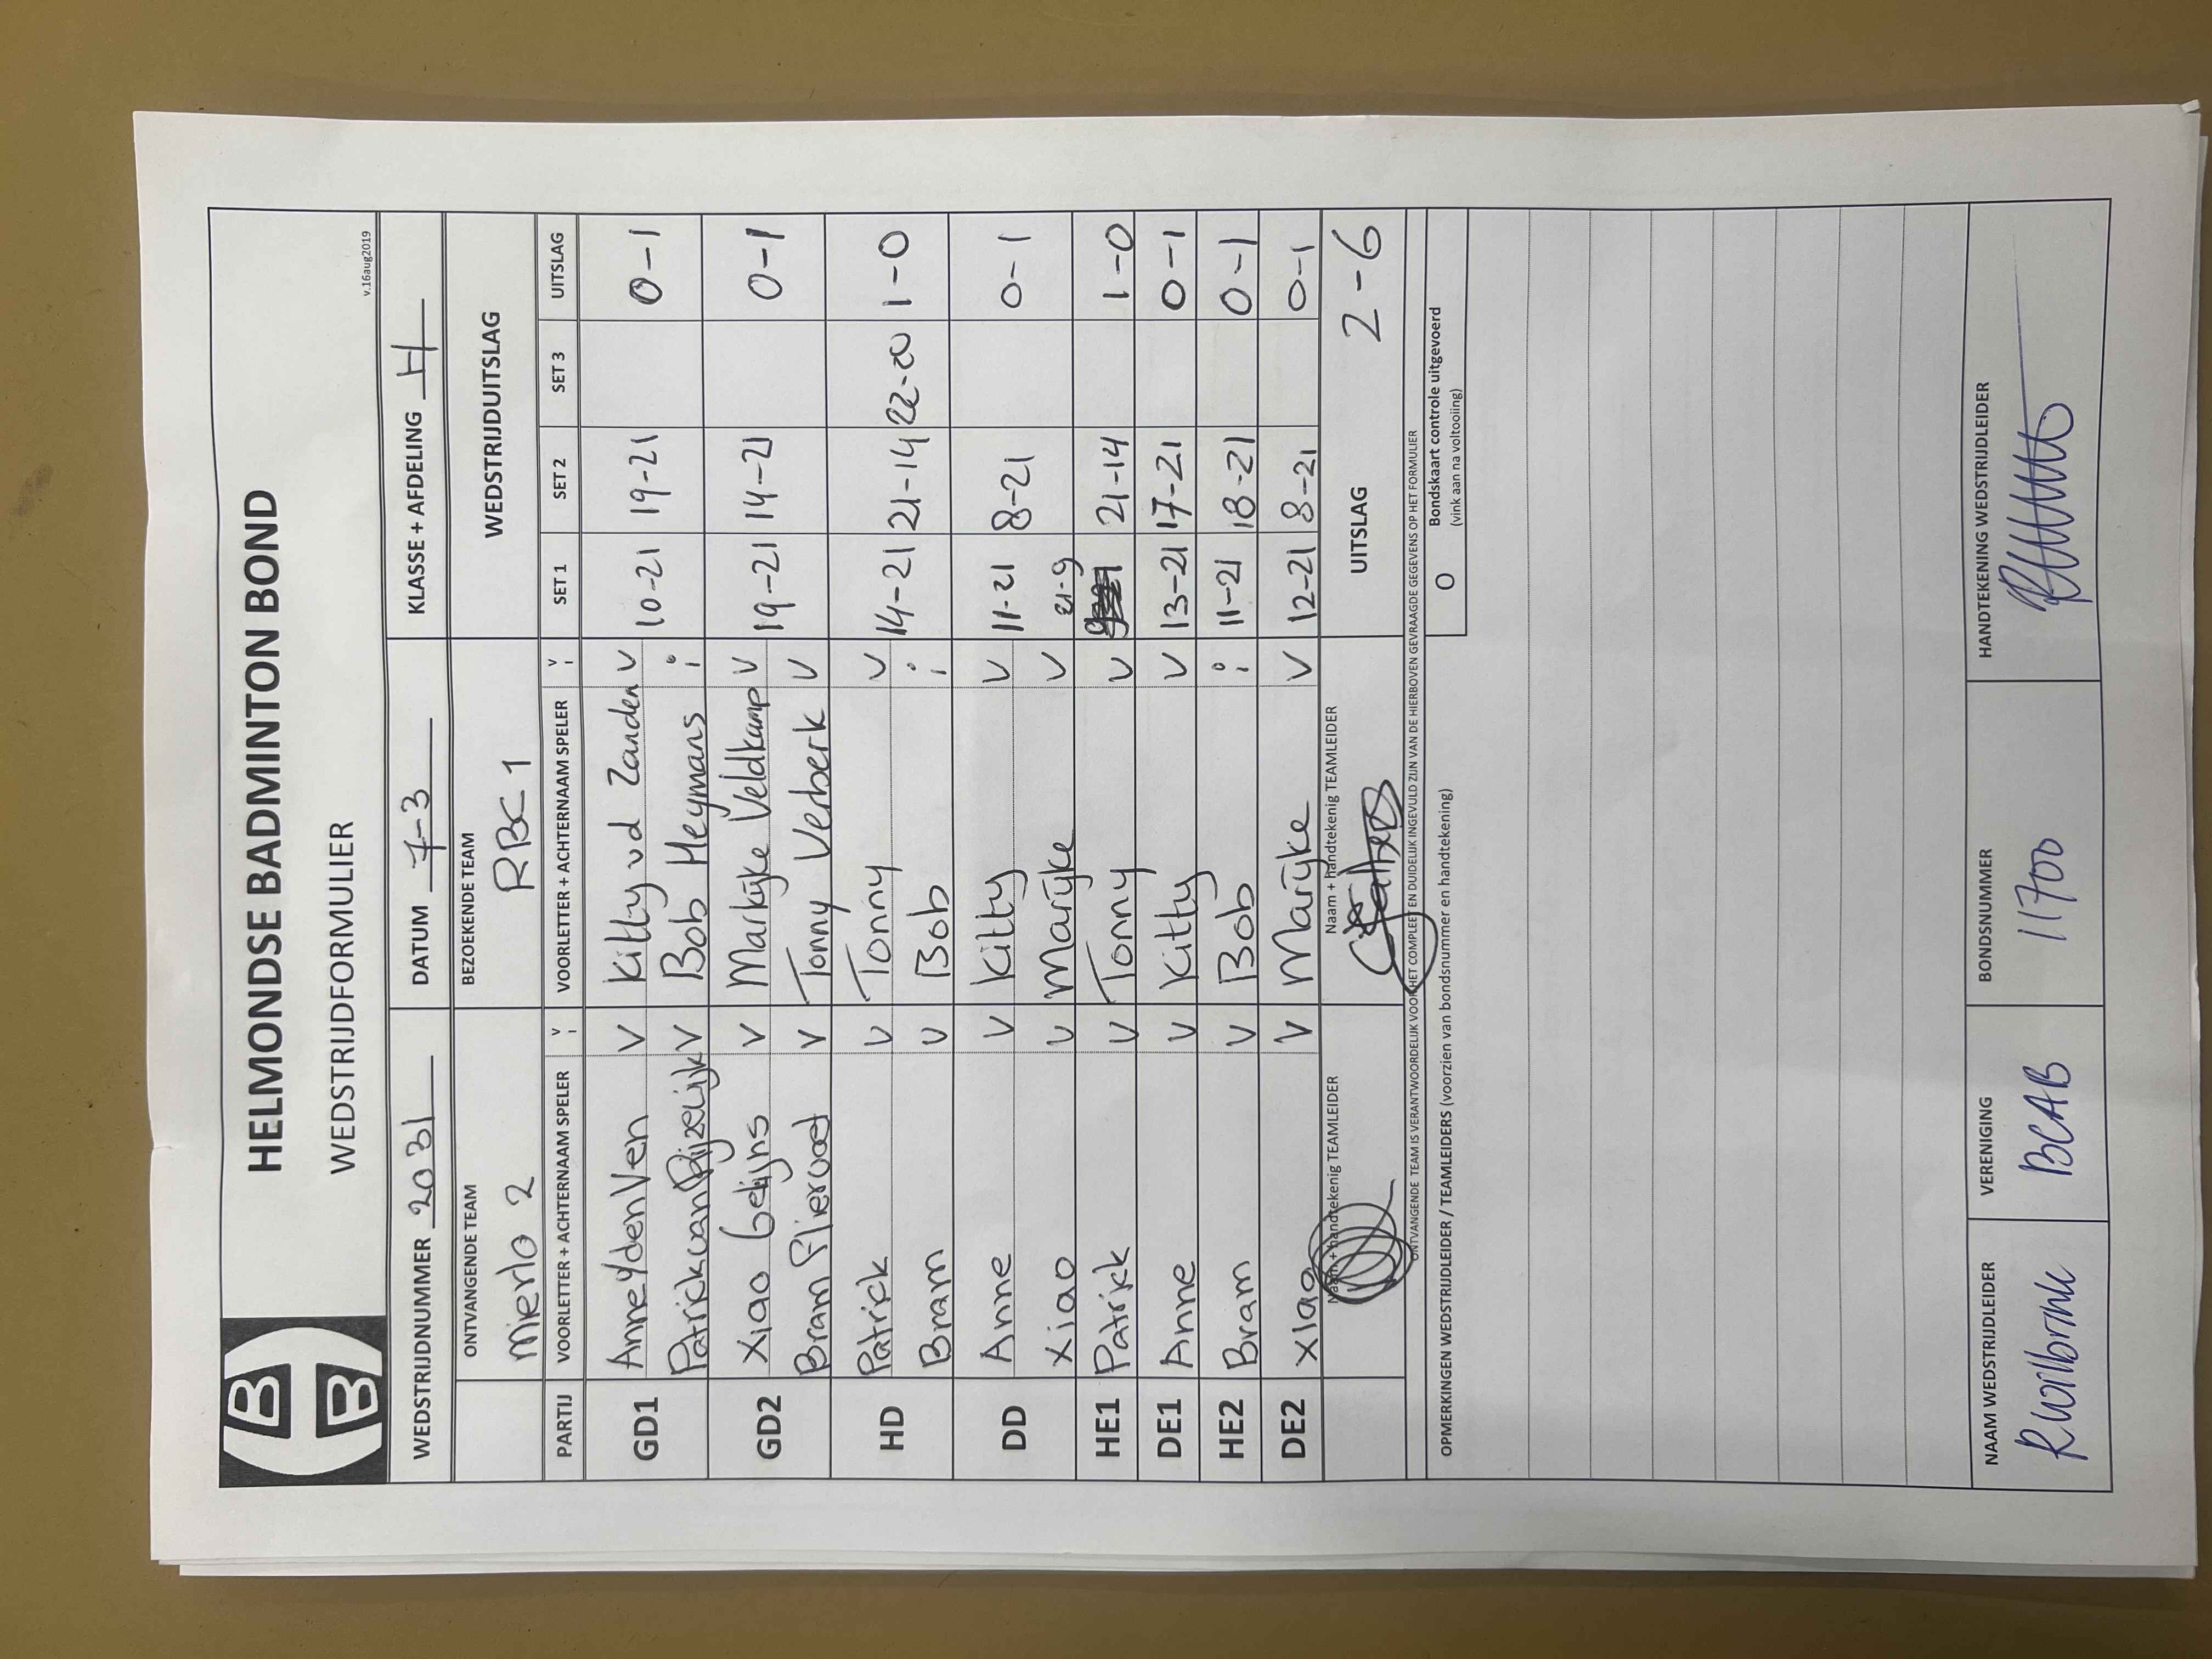 HB
BB
HELMONDSE BADMINTON BOND
WEDSTRIJDFORMULIER
v.16aug2019
WEDSTRIJDNUMMER 2031 DATUM 7-3 KLASSE + AFDELING H
ONTVANGENDE TEAM BEZOEKENDE TEAM WEDSTRIJDUITSLAG
Mierlo 2 RBC 1
PARTIJ VOORLETTER + ACHTERNAAM SPELER V i VOORLETTER + ACHTERNAAM SPELER V i SET 1 SET 2 SET 3 UITSLAG
GD1 Anne vd Ven V Kitty vd Zanden V 10-21 19-21 0-1
Patrick van Rijzewijk V Bob Heymans i
GD2 Xiao Gelijns V Marijke Veldkamp V 19-21 14-21 0-1
Bram Flierod V Tonny Verberk V
HD Patrick V Tonny V 14-21 21-14 22-20 1-0
Bram V Bob i
DD Anne V Kitty V 11-21 8-21 0-1
Xiao V Marijke V
HE1 Patrick V Tonny V 21-9 21-14 1-0
DE1 Anne V Kitty V 13-21 17-21 0-1
HE2 Bram V Bob i 11-21 18-21 0-1
DE2 Xiao V Marijke V 12-21 8-21 0-1
Naam + handtekenig TEAMLEIDER Naam + handtekenig TEAMLEIDER UITSLAG 2-6
ONTVANGENDE TEAM IS VERANTWOORDELIJK VOOR HET COMPLEET EN DUIDELIJK INGEVULD ZIJN VAN DE HIERBOVEN GEVRAAGDE GEGEVENS OP HET FORMULIER
OPMERKINGEN WEDSTRIJDLEIDER / TEAMLEIDERS (voorzien van bondsnummer en handtekening) O Bondskaart controle uitgevoerd
(vink aan na voltooiing)
NAAM WEDSTRIJDLEIDER VERENIGING BONDSNUMMER HANDTEKENING WEDSTRIJDLEIDER
BCAB 11700